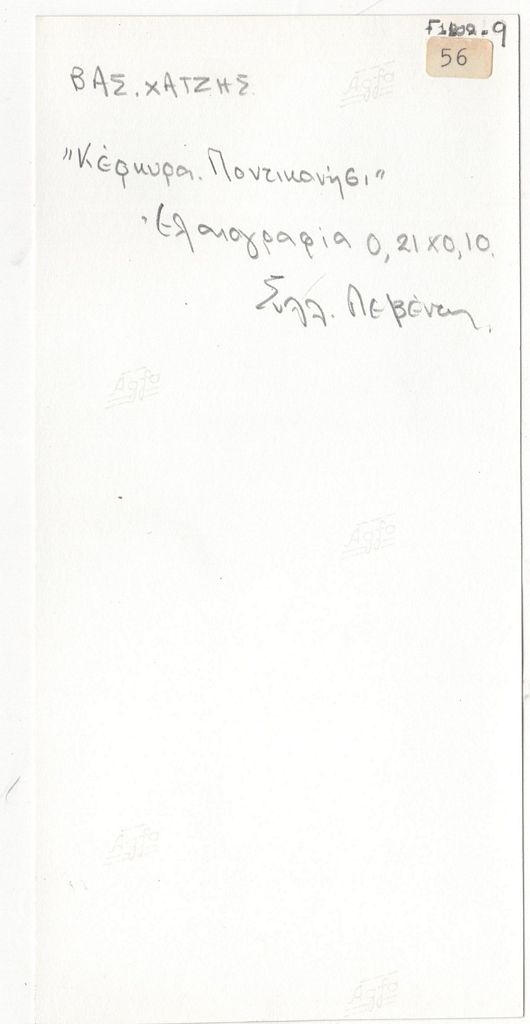 9
56
ΒΑΣ. ΧΑΤΖΗΣ.
"Κέρκυρα. Ποντικονήσι"
Ἐλαιογραφία 0,21 Χ 0,10.
Συλλ. Λεβέντη.
Agfa
Agfa
Agfa
Agfa
Agfa